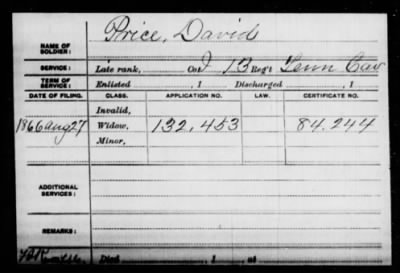 Price, David
NAME OF SOLDIER:
SERVICE: Late rank, Co. I 13 Reg't Tenn Cav
TERM OF SERVICE: Enlisted , 1 Discharged , 1
DATE OF FILING. CLASS. APPLICATION NO. LAW. CERTIFICATE NO.
Invalid,
1866 Aug 27 Widow, 132,453 84.244
Minor,
ADDITIONAL SERVICES:
REMARKS:
Died , 1 , at